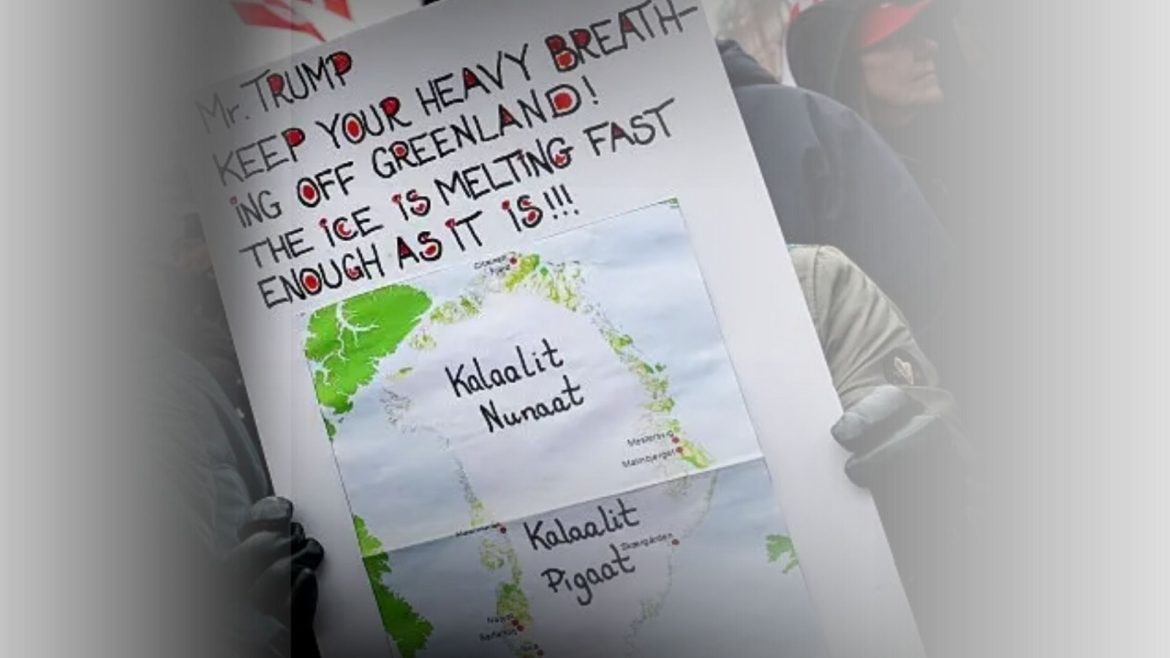 Mr. TRUMP
KEEP YOUR HEAVY BREATH-
ING OFF GREENLAND!
THE ICE IS MELTING FAST
ENOUGH AS IT IS!!!
Kalaallit
Nunaat
Mestersvig
Malmbjerget
Kalaallit
Skærgården
Pigaat